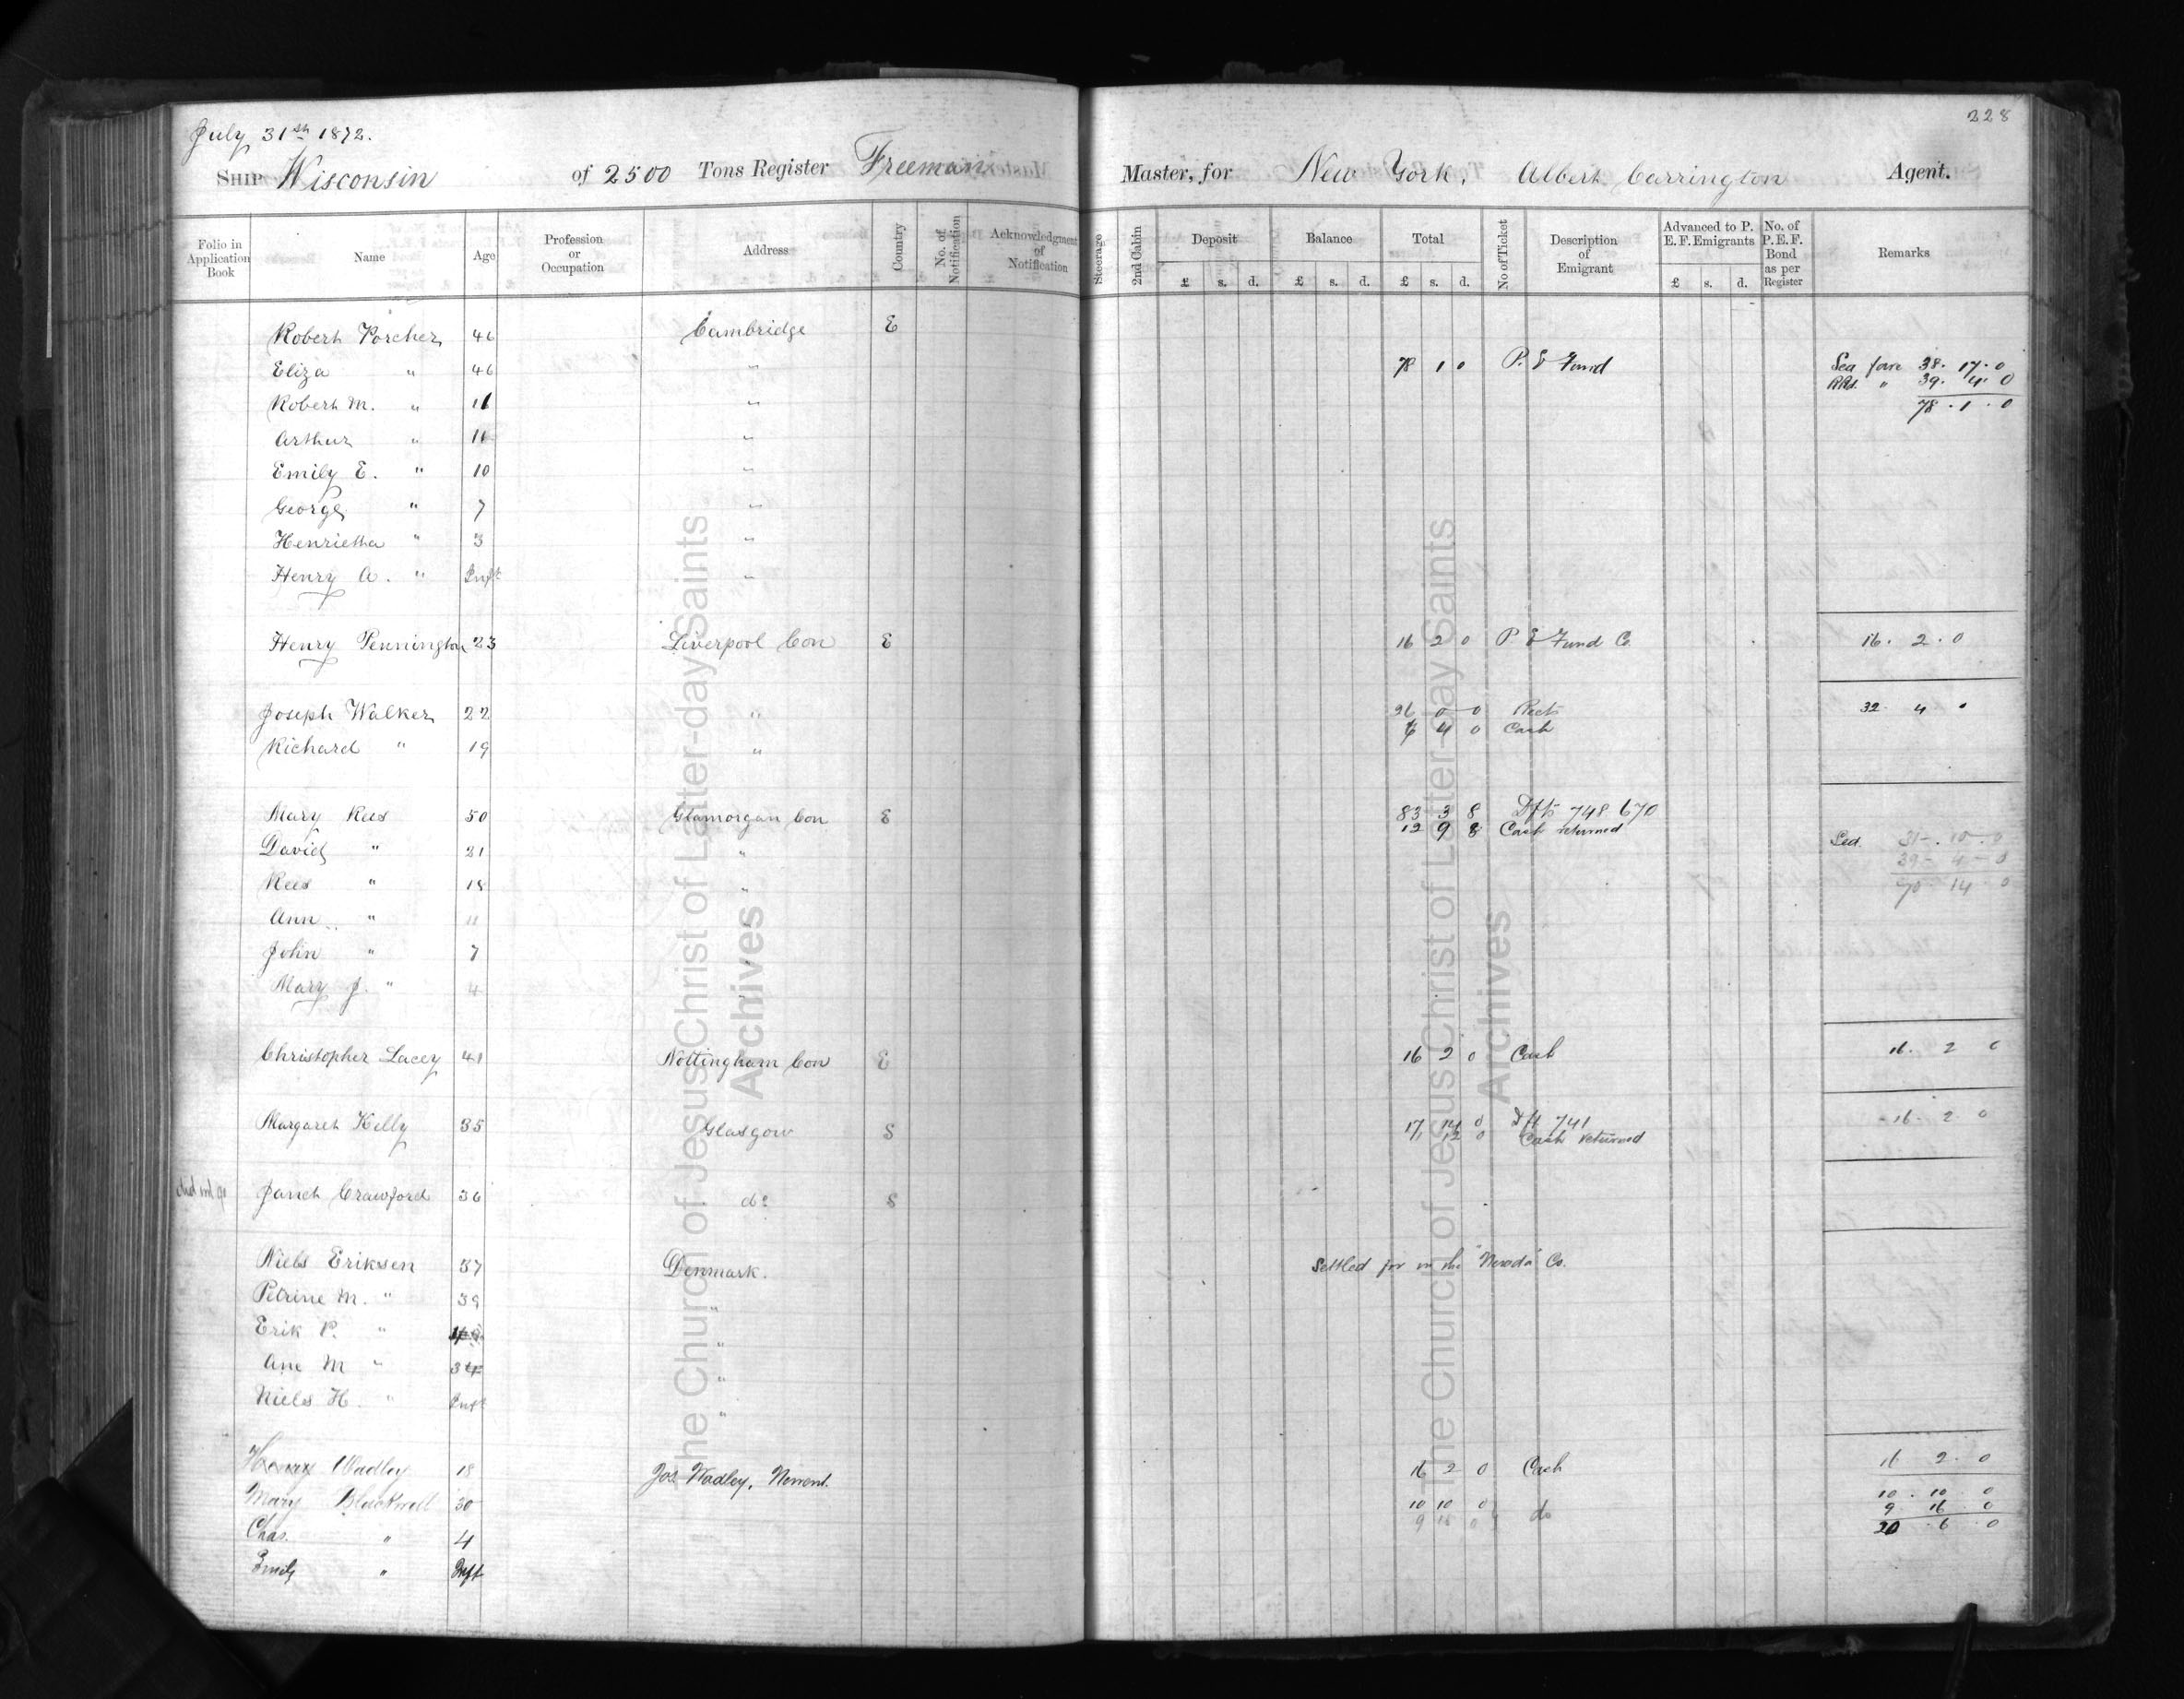 228
July 31st 1872.
Ship Wisconsin of 2500 Tons Register Freeman Master, for New York, Albert Carrington Agent.
Folio in Application Book Name Age Profession or Occupation Address Country No. of Notification Acknowledgment of Notification Steerage 2nd Cabin Deposit £ s. d. Balance £ s. d. Total £ s. d. No of Ticket Description of Emigrant Advanced to P. E. F. Emigrants £ s. d. No. of P. E. F. Bond as per Register Remarks
Robert Porcher 46 Cambridge E
Eliza " 46 " 78 1 0 P. E Fund Sea fare 38. 17. 0
39. 4. 0
Robert M. " " 78. 1. 0
Arthur " 11 "
Emily E. " 10 "
George " 7 "
Henrietta " 3 "
Henry A. " Inft "
Henry Pennington 23 Liverpool Con E 16 2 0 P. E Fund Co 16. 2. 0
Joseph Walker 22 " 26 0 0 32 4
Richard " 19 " 6 4 0 Cash
Mary Rees 50 Glamorgan Con E 83 3 8 Dfts 748 670
12 9 8 Cash returned
David " 21 " 31-. 10-. 0
39- 4- 0
Rees " 18 " 70 14. 0
Ann " 11
John " 7 "
Mary J. " 4 "
Christopher Lacey 41 Nottingham Con E 16 2 0 Cash 16. 2 0
Margaret Kelly 35 Glasgow S 17 14 0 Dft 741 16. 2 0
12 0 Cash returned
did not go Janet Crawford 36 do S
Niels Eriksen 37 Denmark. Settled for in the "Nevada" Co.
Petrine M. " 39 "
Erik P. " "
Ane M " "
Niels H. " Inft "
Henry Wadley 18 Jos. Wadley, 16 2 0 Cash 16 2. 0
Mary Blackwell 30 10 10 0 do 10. 10. 0
9 16 0 9. 16. 0
Chas. " 4 20. 6. 0
Emily " Inft
The Church of Jesus Christ of Latter-day Saints
Archives
The Church of Jesus Christ of Latter-day Saints
Archives